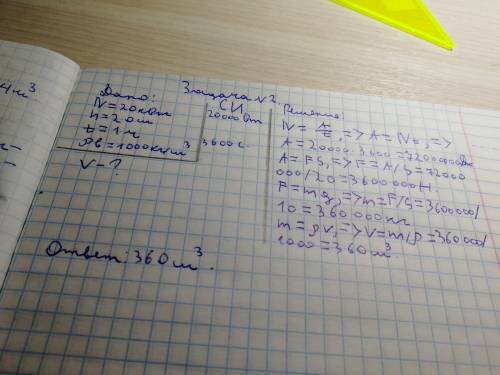 4 м³
Задача №2
Дано:
N=20кВт
h=20м
t=1ч
ρв=1000кг/м³
V-?
СИ
20000Вт
3600с.
Решение:
N=A/t, => A=Nt, =>
A=20000·3600=72000000Дж
A=FS, => F=A/S=72000
000/20=3600000Н.
F=mg, => m=F/g=3600000/
10=360000кг
m=ρV, => V=m/ρ=360000/
1000=360м³.
Ответ: 360м³.